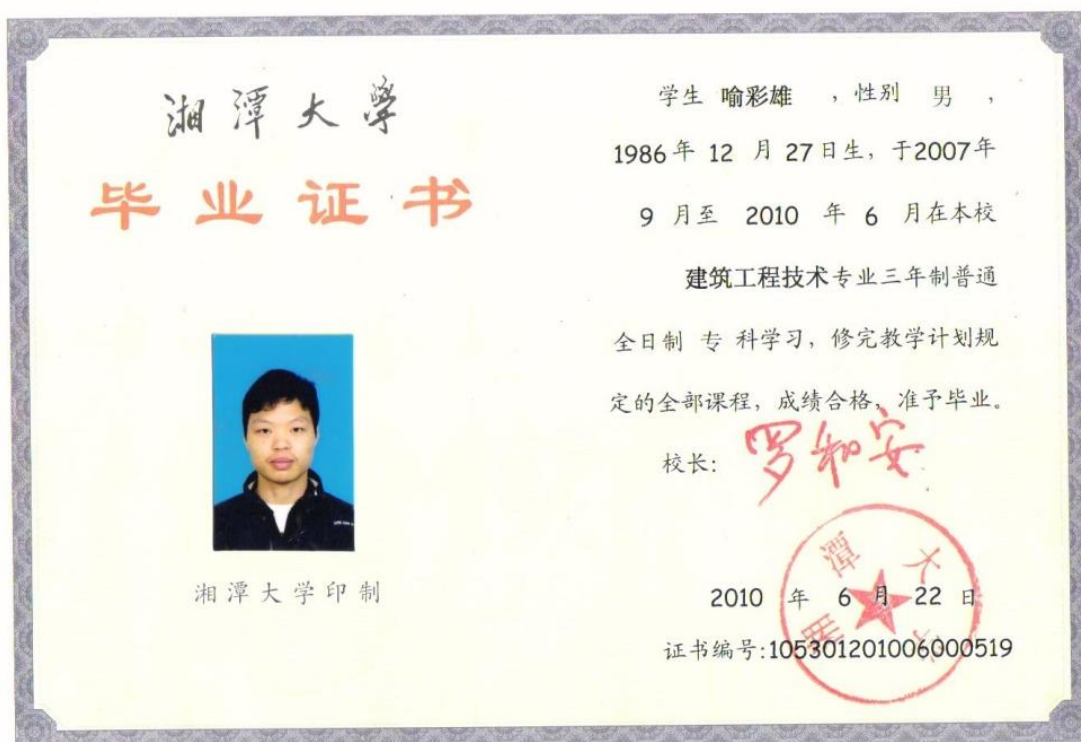 湘潭大學
毕业证书
湘潭大学印制
学生 喻彩雄 ，性别 男 ，
1986年 12 月 27日生，于2007年
9 月至 2010 年 6 月在本校
建筑工程技术专业三年制普通
全日制 专 科学习，修完教学计划规
定的全部课程，成绩合格，准予毕业。
校长：罗和安
湘潭大学
2010 年 6 月 22 日
证书编号:105301201006000519